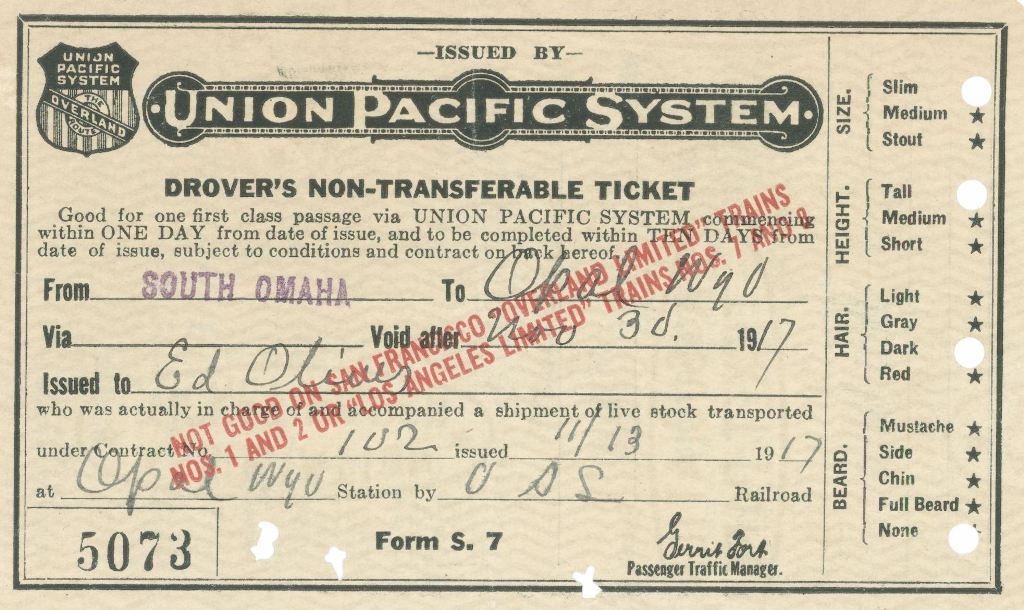 —ISSUED BY—
UNION PACIFIC SYSTEM
THE OVERLAND ROUTE
UNION PACIFIC SYSTEM
DROVER'S NON-TRANSFERABLE TICKET
Good for one first class passage via UNION PACIFIC SYSTEM commencing
within ONE DAY from date of issue, and to be completed within TEN DAYS from
date of issue, subject to conditions and contract on back hereof.
From SOUTH OMAHA To Opal Wyo
Via Void after 3d. 1917
Issued to Ed
who was actually in charge of and accompanied a shipment of live stock transported
under Contract No. 102 issued 11/13 1917
at Opal Wyo Station by O S L Railroad
NOT GOOD ON SAN FRANCISCO "OVERLAND LIMITED" TRAINS
NOS. 1 AND 2 OR "LOS ANGELES LIMITED" TRAINS NOS. 7 AND 8
5073
Form S. 7
Gerrit Fort
Passenger Traffic Manager.
SIZE.
Slim
Medium ★
Stout ★
HEIGHT.
Tall
Medium ★
Short ★
HAIR.
Light ★
Gray ★
Dark
Red ★
BEARD.
Mustache ★
Side ★
Chin ★
Full Beard ★
None